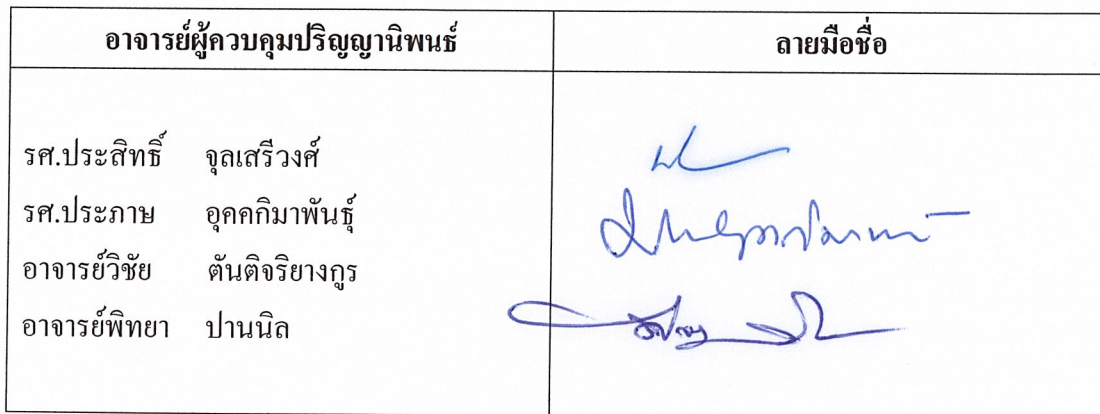 อาจารย์ผู้ควบคุมปริญญานิพนธ์ ลายมือชื่อ
รศ.ประสิทธิ์ จุลเสรีวงศ์
รศ.ประภาษ อุคคกิมาพันธุ์
อาจารย์วิชัย ตันติจริยางกูร
อาจารย์พิทยา ปานนิล